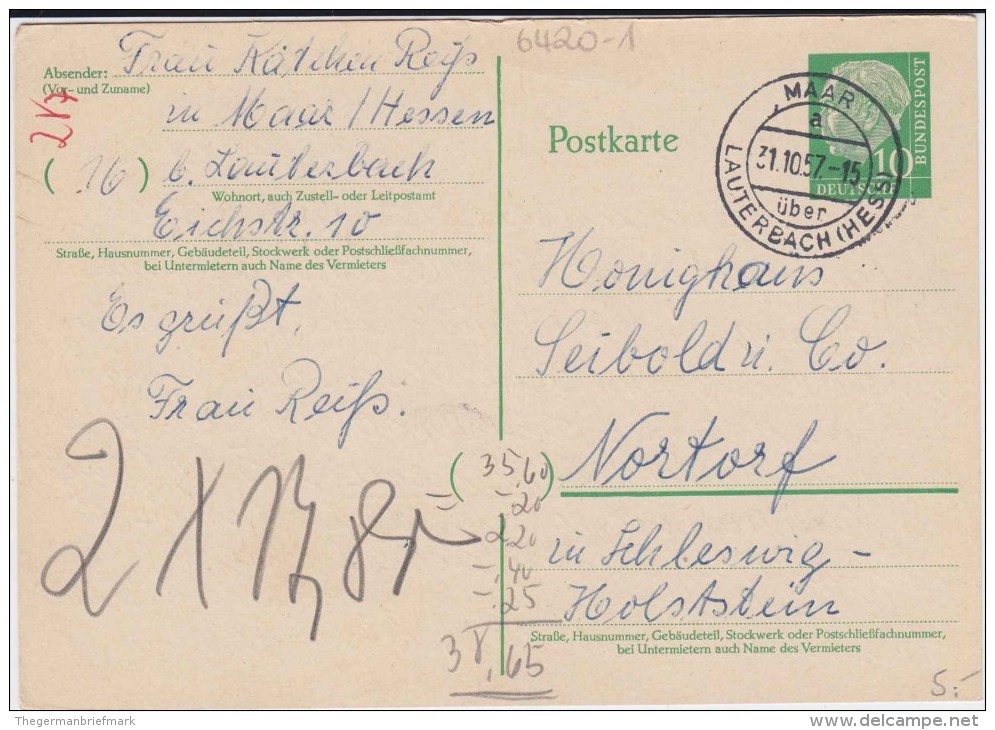 6420-1
Absender: Frau Kätchen Reiß
(Vor- und Zuname)
in Maar / Hessen
(16) b. Lauterbach
Wohnort, auch Zustell- oder Leitpostamt
Eichstr. 10
Straße, Hausnummer, Gebäudeteil, Stockwerk oder Postschließfachnummer,
bei Untermietern auch Name des Vermieters
Es grüßt,
Frau Reiß.
Postkarte
10
DEUTSCHE
BUNDESPOST
MAAR
a
31.10.57.-15
über
LAUTERBACH (HESS)
Honighaus
Seibold u. Co.
Nortorf
in Schleswig-
Holstein
Straße, Hausnummer, Gebäudeteil, Stockwerk oder Postschließfachnummer,
bei Untermietern auch Name des Vermieters
2 X 17,8
35,60
-20
2,20
-,40
-,25
38,65
5.-
Thegermanbriefmark
delcampe.net